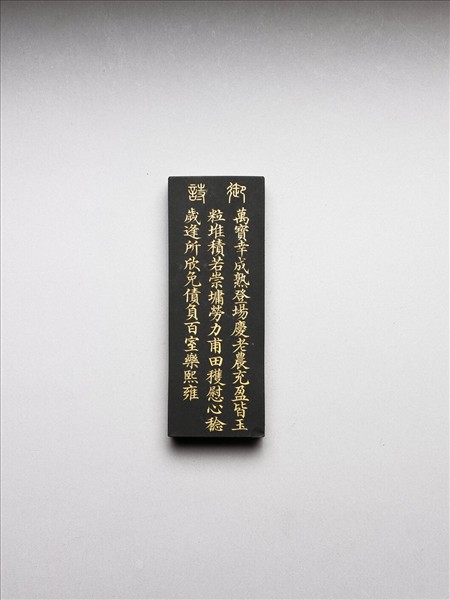 御詩
萬寶幸成熟登場慶老農充盈皆玉
粒堆積若崇墉勞力甫田穫慰心稔
歲逢所欣免債負百室樂熙雍